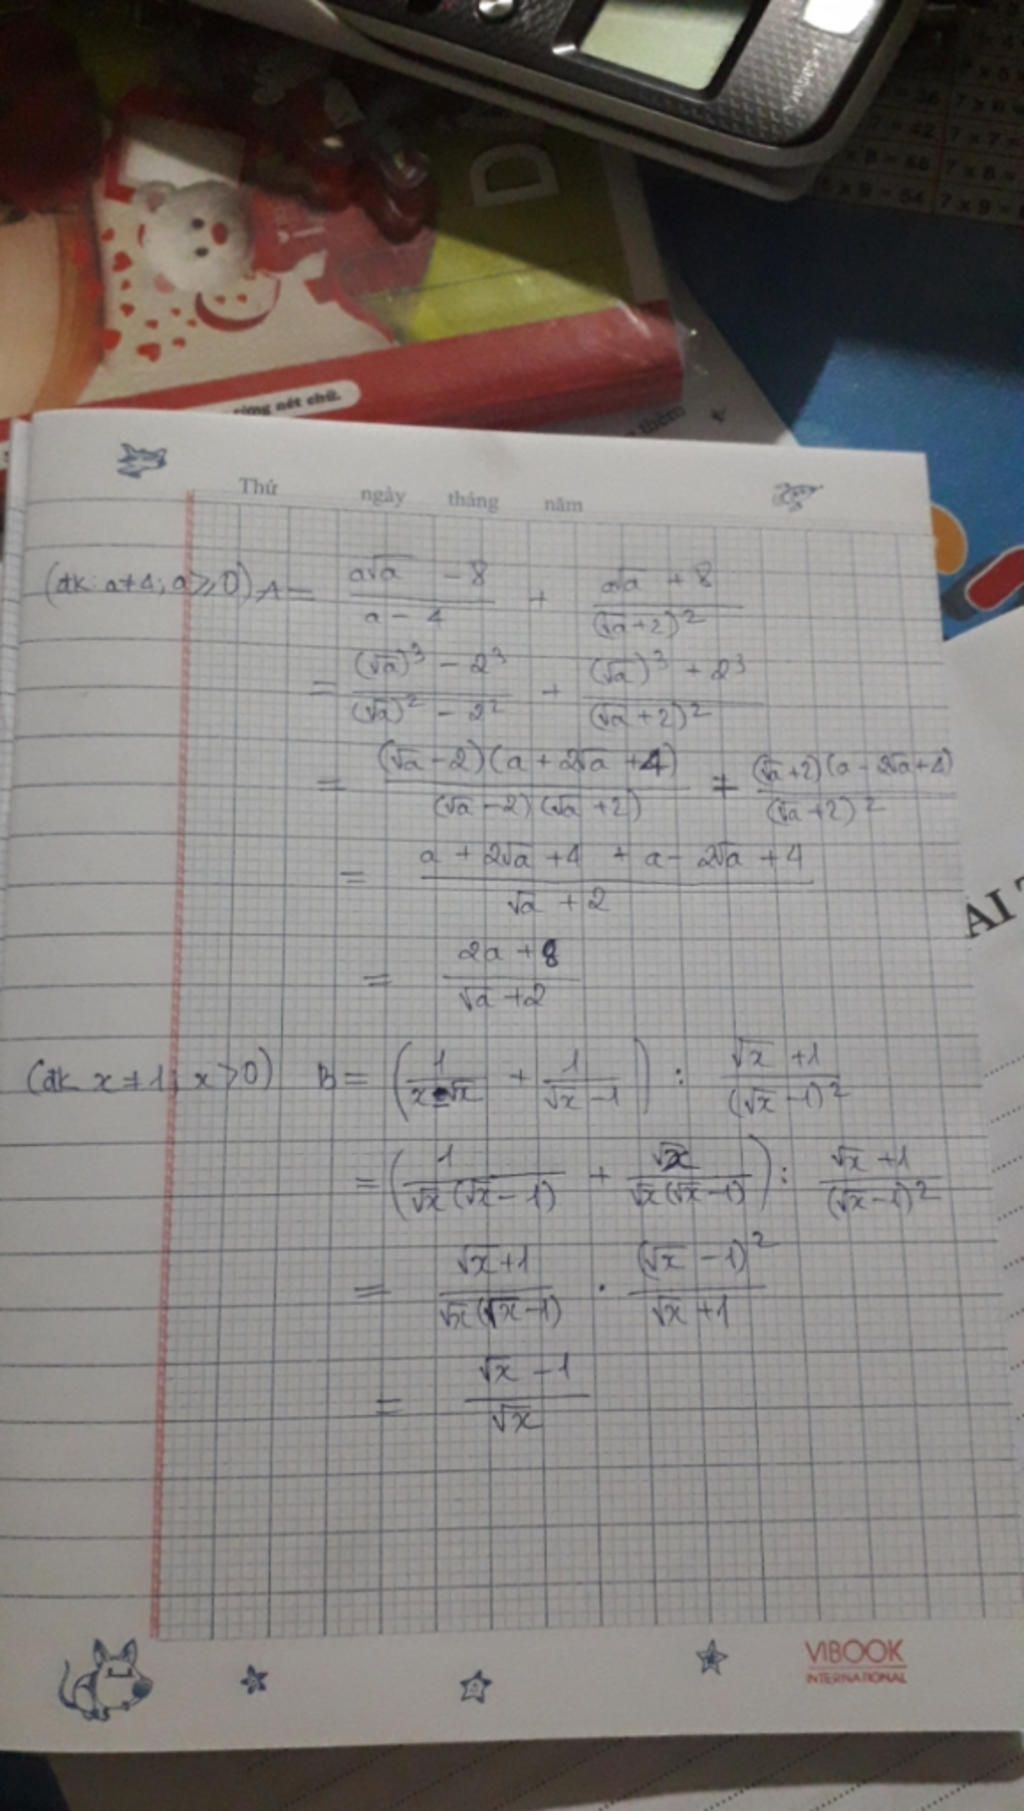 D
từng nét chữ.
thêm
36 7 x 6 =
7 = 42 7 x 7 =
x 8 = 48 7 x 8 =
6 x 9 = 54 7 x 9 =
Thứ ngày tháng năm
(đk: a≠4; a≥0) A = (a√a - 8)/(a - 4) + (a√a + 8)/(√a+2)²
= ((√a)³ - 2³)/((√a)² - 2²) + ((√a)³ + 2³)/(√a+2)²
= (√a-2)(a+2√a+4)/(√a-2)(√a+2) + (√a+2)(a-2√a+4)/(√a+2)²
= (a+2√a+4 + a-2√a+4)/(√a+2)
= (2a+8)/(√a+2)
(đk x≠1; x>0) B = (1/(x-√x) + 1/(√x-1)) : (√x+1)/(√x-1)²
= (1/(√x(√x-1)) + √x/(√x(√x-1))) : (√x+1)/(√x-1)²
= (√x+1)/(√x(√x-1)) . (√x-1)²/(√x+1)
= (√x-1)/√x
VIBOOK
INTERNATIONAL